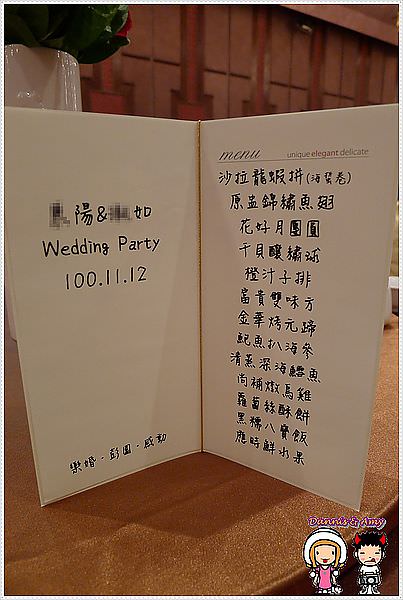 陽&如
Wedding Party
100.11.12
樂婚·彭園·感動
menu
unique elegant delicate
沙拉龍蝦拼(海蜇卷)
原盅錦繡魚翅
花好月團圓
干貝釀繡球
橙汁子排
富貴雙味方
金華烤元蹄
鮑魚扒海參
清蒸深海鱈魚
尚補燉烏雞
蘿蔔絲酥餅
黑糯八寶飯
應時鮮水果
Danius & Amy